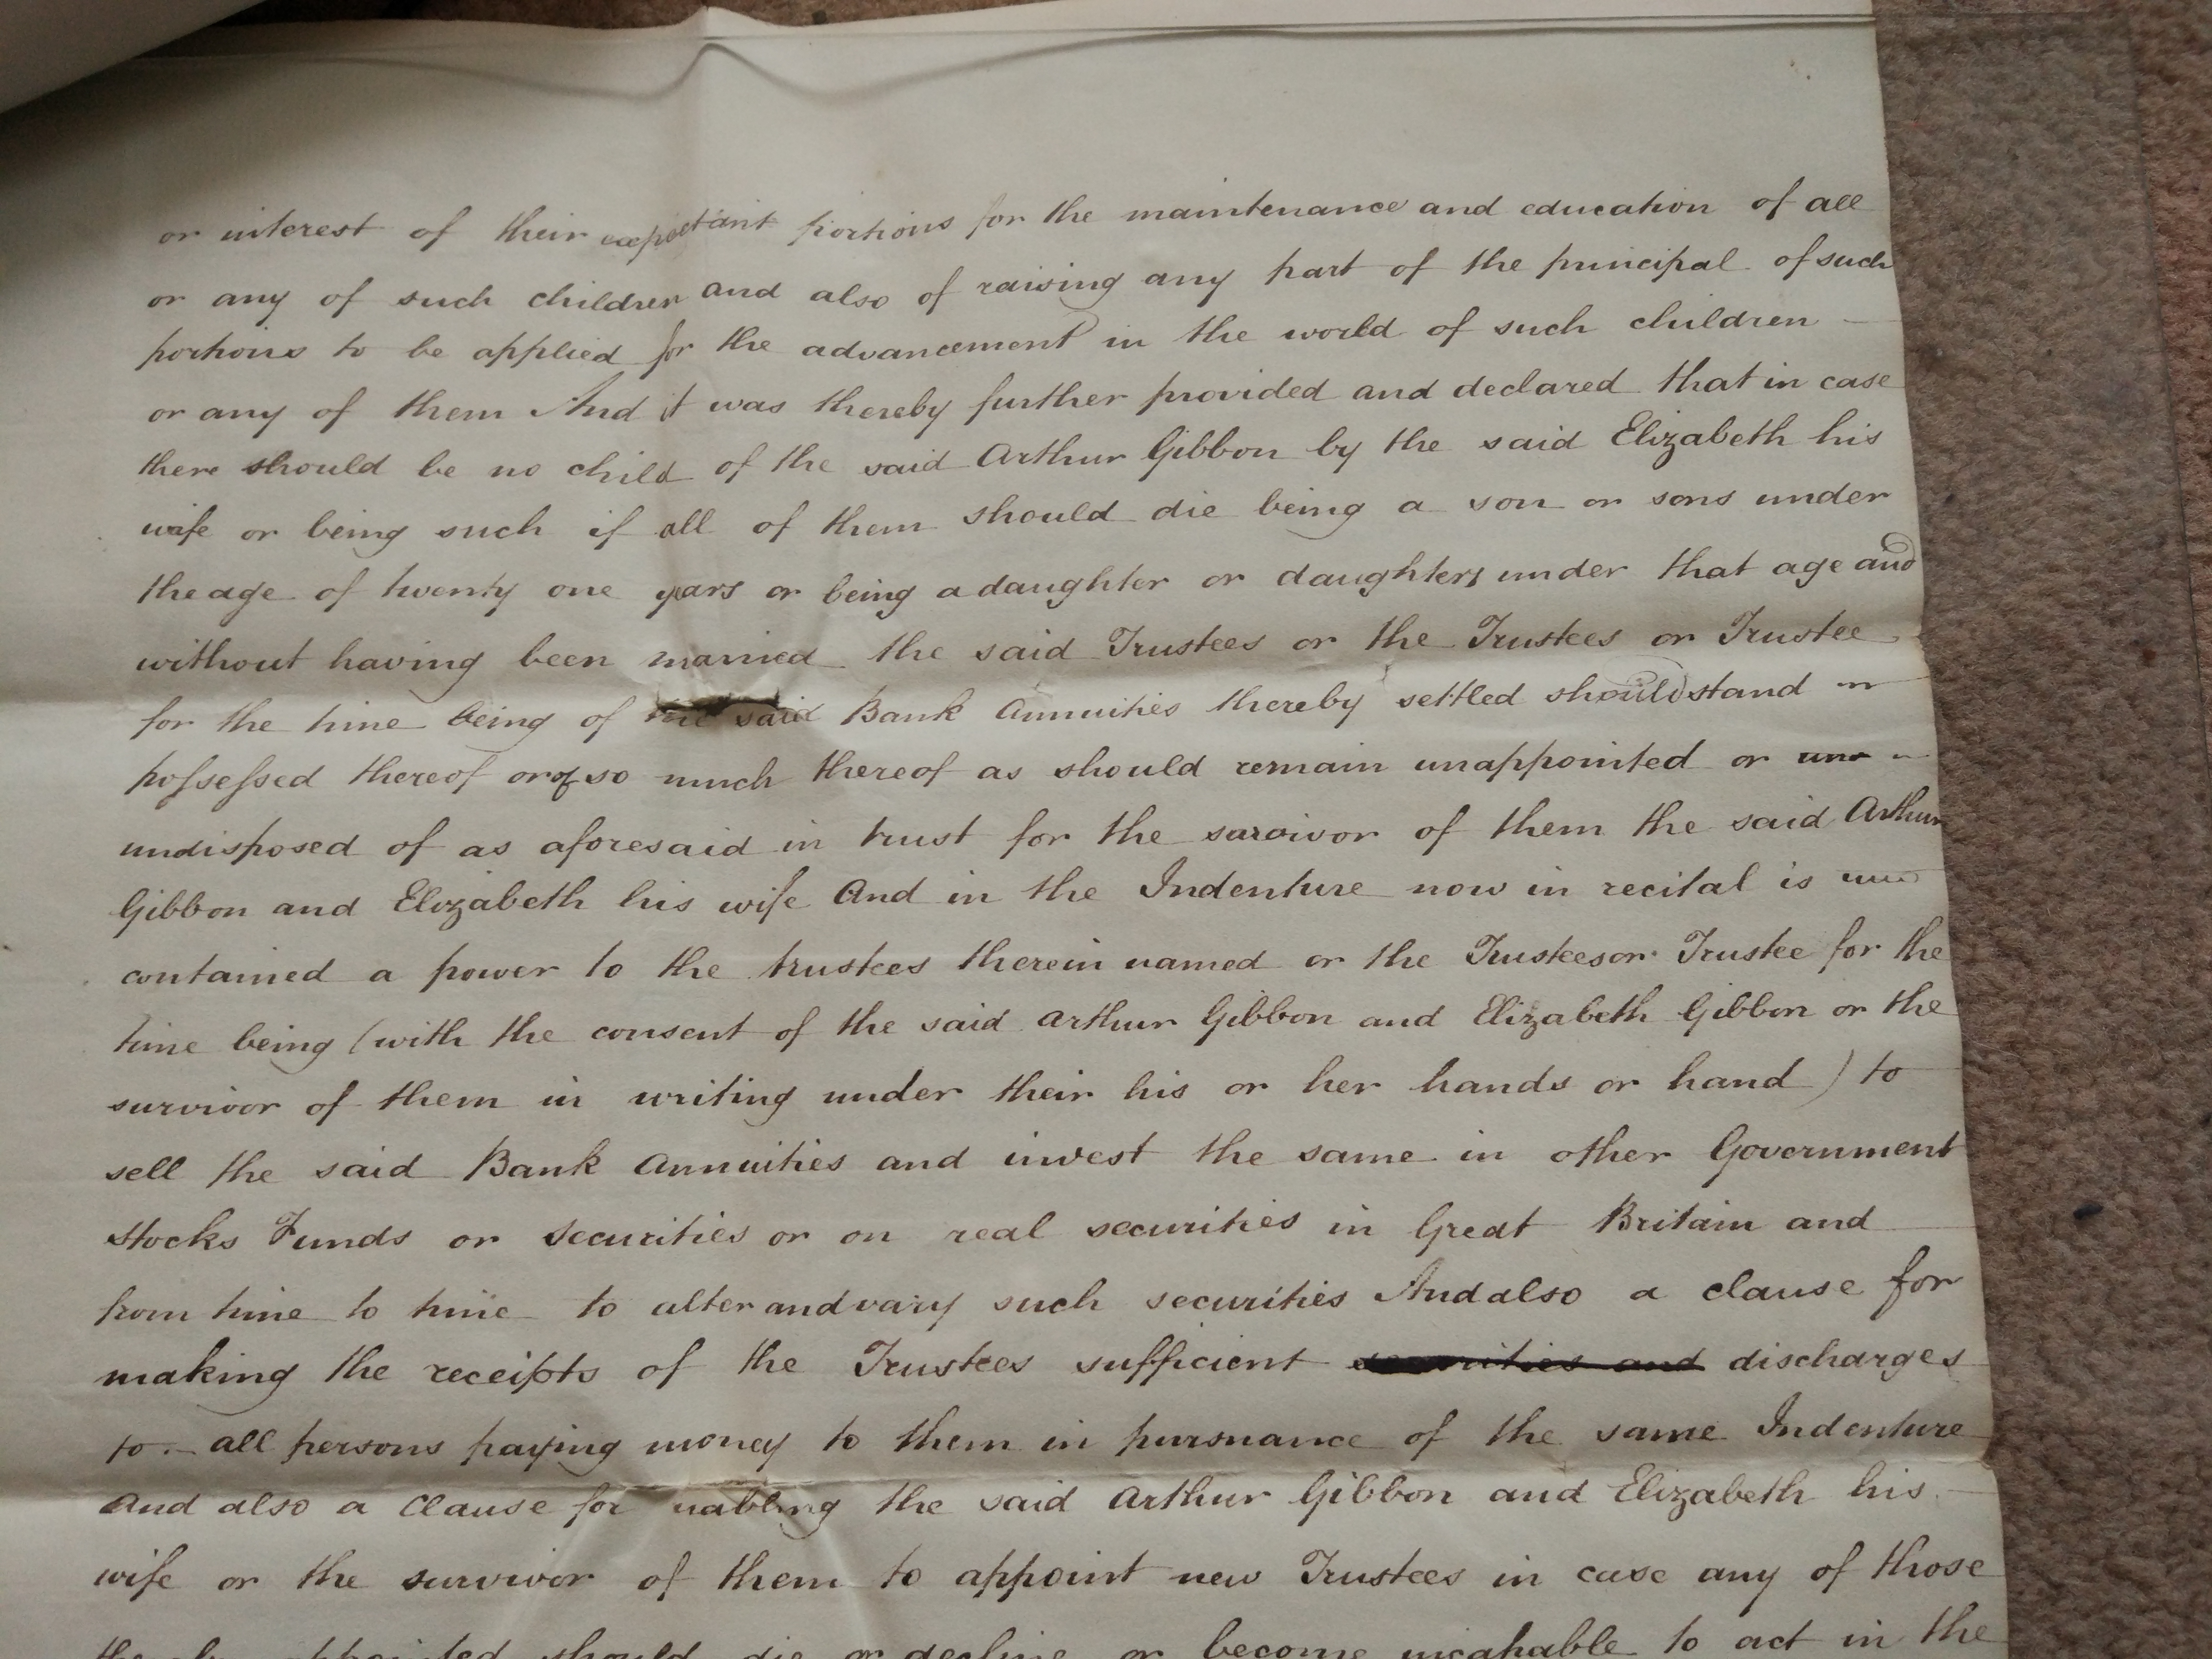 or interest of their expectant portions for the maintenance and education of all
or any of such children and also of raising any part of the principal of such
portions to be applied for the advancement in the world of such children —
or any of them And it was thereby further provided and declared that in case
there should be no child of the said Arthur Gibbon by the said Elizabeth his
wife or being such if all of them should die being a son or sons under
the age of twenty one years or being a daughter or daughters under that age and
without having been married the said Trustees or the Trustees or Trustee
for the time being of the said Bank Annuities thereby settled should stand
possessed thereof or of so much thereof as should remain unappointed or
undisposed of as aforesaid in trust for the survivor of them the said Arthur
Gibbon and Elizabeth his wife And in the Indenture now in recital is
contained a power to the trustees therein named or the Trustees or Trustee for the
time being (with the consent of the said Arthur Gibbon and Elizabeth Gibbon or the
survivor of them in writing under their his or her hands or hand) to
sell the said Bank Annuities and invest the same in other Government
Stocks Funds or Securities or on real securities in Great Britain and
from time to time to alter and vary such securities And also a clause for
making the receipts of the Trustees sufficient securities and discharges
to — all persons paying money to them in pursuance of the same Indenture
And also a Clause for nabling the said Arthur Gibbon and Elizabeth his —
wife or the survivor of them to appoint new Trustees in case any of those
should die or decline or become incapable to act in the